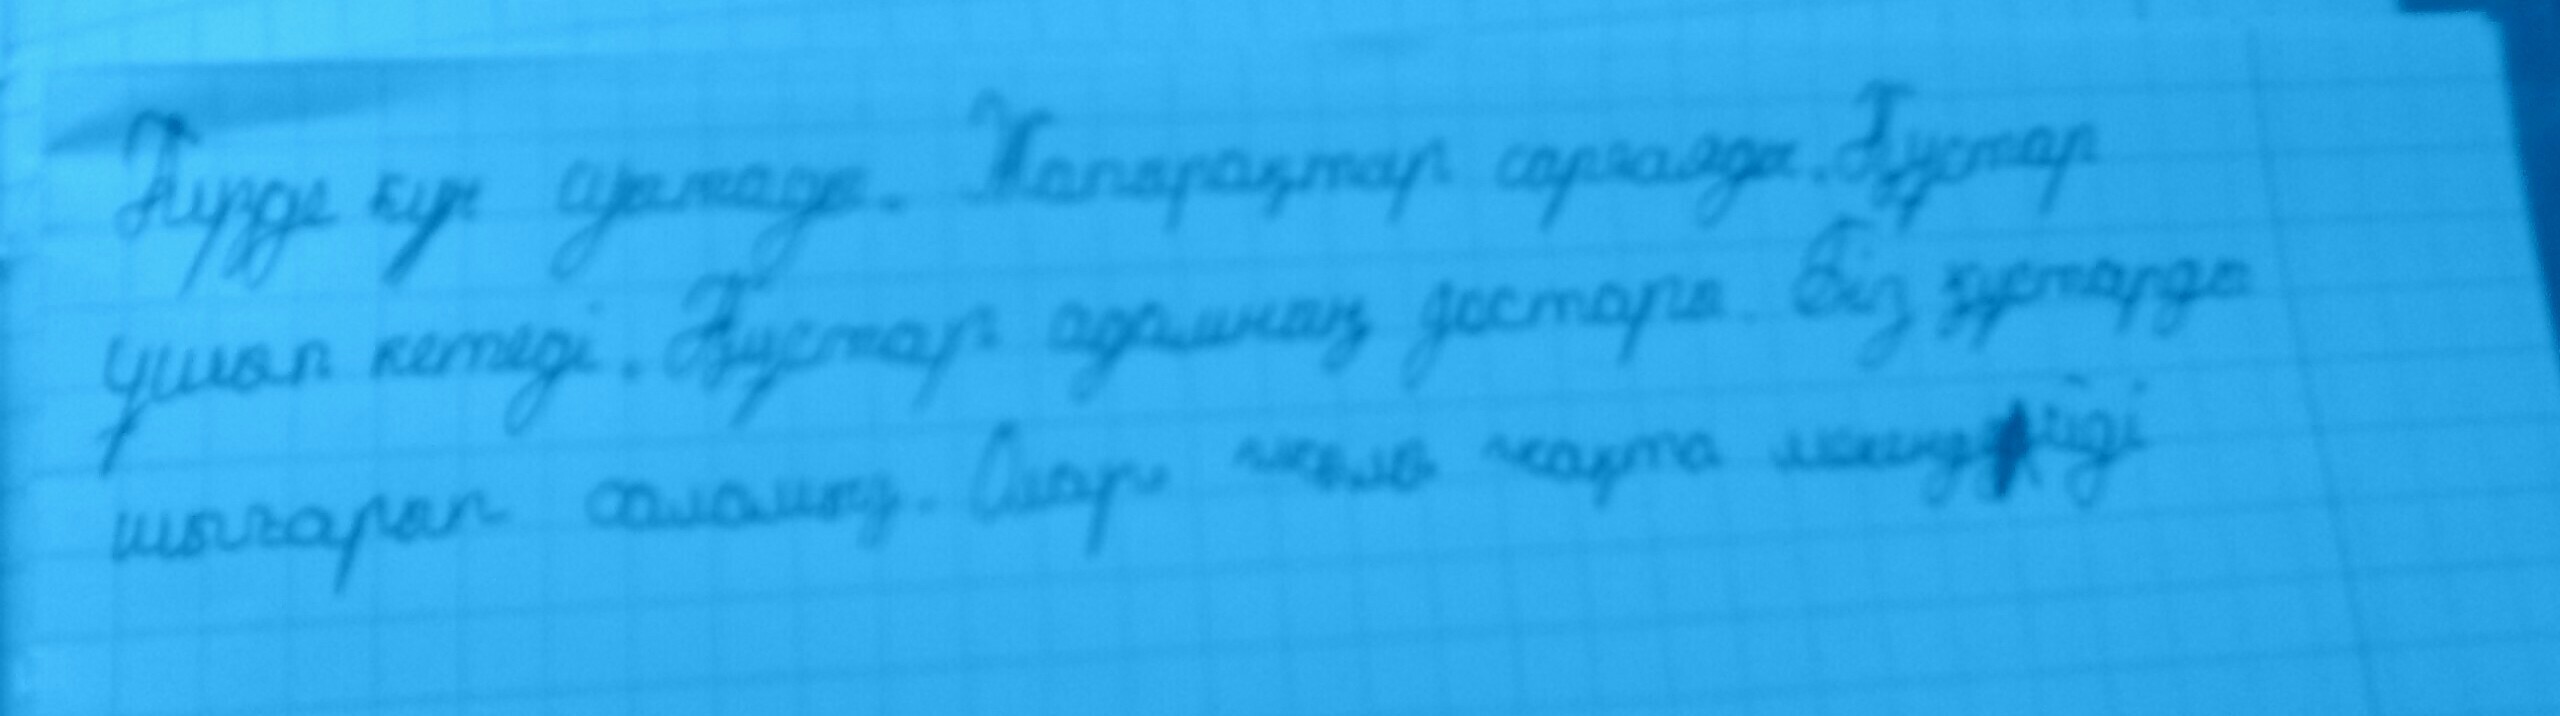 Күзде күн суытады. Жапырақтар сарғаяды. Құстар
ұшып кетеді. Құстар адамның достары. Біз құстарды
шығарып саламыз. Олар жылы жақта мекендейді